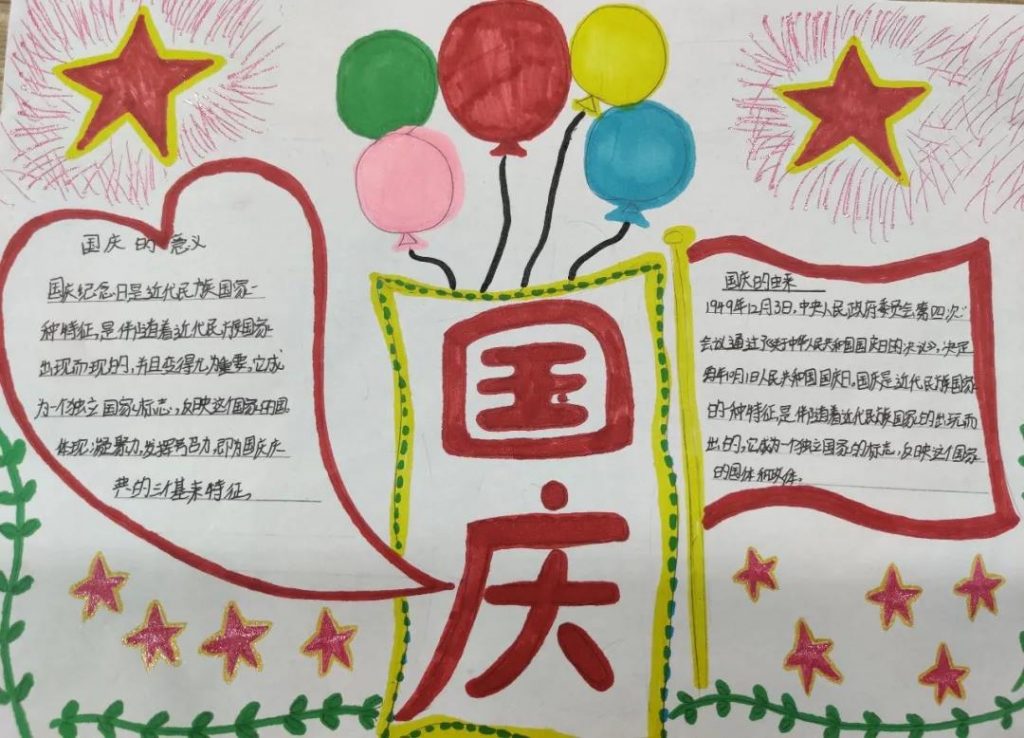 国庆的意义
国庆纪念日是近代民族国家一
种特征,是伴随着近代民族国家
出现而现的,并且变得尤为重要。它成
为一个独立国家标志,反映这个国家的国
体现:凝聚力,发挥号召力,即为国庆庆
典的三个基本特征。
国庆
国庆的由来
1949年12月3日,中央人民政府委员会第四次
会议通过了《关于中华人民共和国国庆日的决议》,决定
每年10月1日人民共和国国庆日。国庆是近代民族国家
的一种特征,是伴随着近代民族国家的出现而
出的,它成为一个独立国家的标志,反映这个国家
的国体和政体。